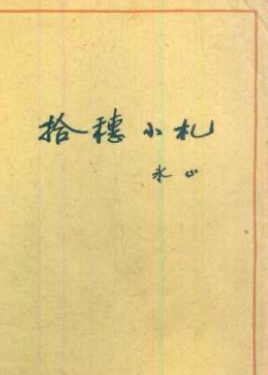 拾穗小札
氷心